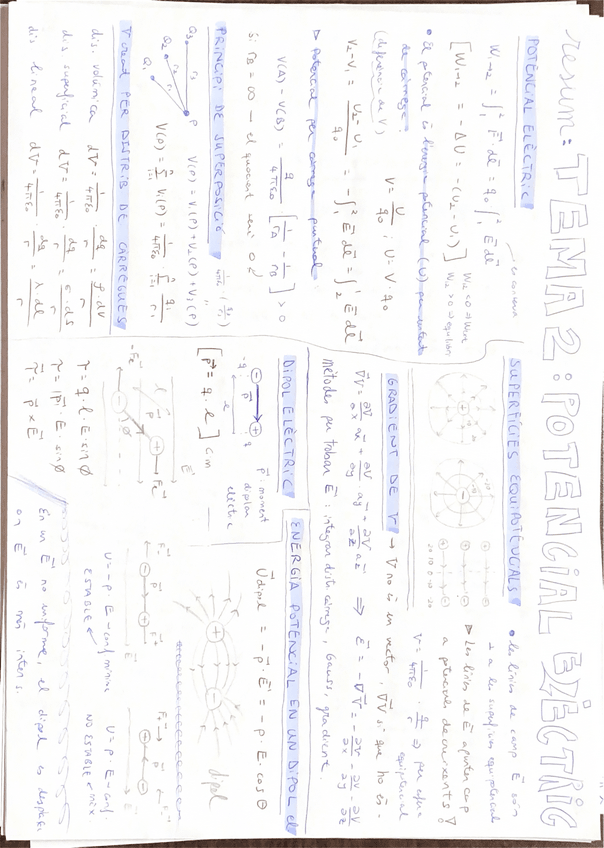 resum: TEMA 2: POTENCIAL ELÈCTRIC
POTENCIAL ELÈCTRIC
W₁→₂ = ∫₁² F⃗ · dℓ⃗ = q₀ ∫₁² E⃗ dℓ⃗
[W₁→₂ = -ΔU = -(U₂-U₁)]
• El potencial és l'energia potencial (U) per unitat
de càrrega.
(diferència de V)
V = U/q₀ ; U = V·q₀
V₂-V₁ = (U₂-U₁)/q₀ = -∫₁² E⃗ dℓ⃗ = ∫₂¹ E⃗ dℓ⃗
▷ Potencial per càrrega puntual.
V(A) - V(B) = q/4πε₀ [1/rA - 1/rB] > 0
Si rB = ∞ → el quocient serà 0
PRINCIPI DE SUPERPOSICIÓ
Q₃ Q₂ Q₁ r₃ r₂ r₁ P
V(P) = V₁(P) + V₂(P) + V₃(P)
V(P) = Σ Vᵢ(P) = 1/4πε₀ Σ qᵢ/rᵢ
V creat PER DISTRIB DE CÀRREGUES
dis. volúmica dV = 1/4πε₀ · dq/r = ρ·dV/r
dis superficial dV = 1/4πε₀ · dq/r = σ·dS/r
dis lineal dV = 1/4πε₀ · dq/r = λ dℓ/r
SUPERFÍCIES EQUIPOTENCIALS
• les línies de camp E⃗ són
⊥ a les superfícies equipotencials
▷ Les línies de E⃗ apunten cap
a potencials decreixents ∇
V = 1/4πε₀ · q/r ⇒ per esfera
equipotencial
GRADIENT DE V → V no és un vector, ∇⃗V sí que ho és.
∇⃗V = ∂V/∂x a⃗x + ∂V/∂y a⃗y + ∂V/∂z a⃗z ⇒ E⃗ = -∇⃗V = -∂V/∂x - ∂V/∂y - ∂V/∂z
mètodes per trobar E⃗ : integran distb càrrega, Gauss, gradient.
DIPOL ELÈCTRIC
-q p⃗ q
ℓ
[p⃗ = q·ℓ] C·m
p⃗: moment
dipolar
elèctric
-Fe⃗ Fe⃗ E⃗
τ = q·ℓ·E·sinφ
τ = |p⃗|·E·sinφ
τ⃗ = p⃗ × E⃗
ENERGIA POTENCIAL EN UN DIPOL el
Udipol = -p⃗·E⃗ = -p·E·cos θ
dipol
U = -p·E → conf mínima
ESTABLE
U = p·E → conf.
NO ESTABLE màx.
En un E⃗ no uniforme, el dipol es desplaça
on E⃗ és més intens.